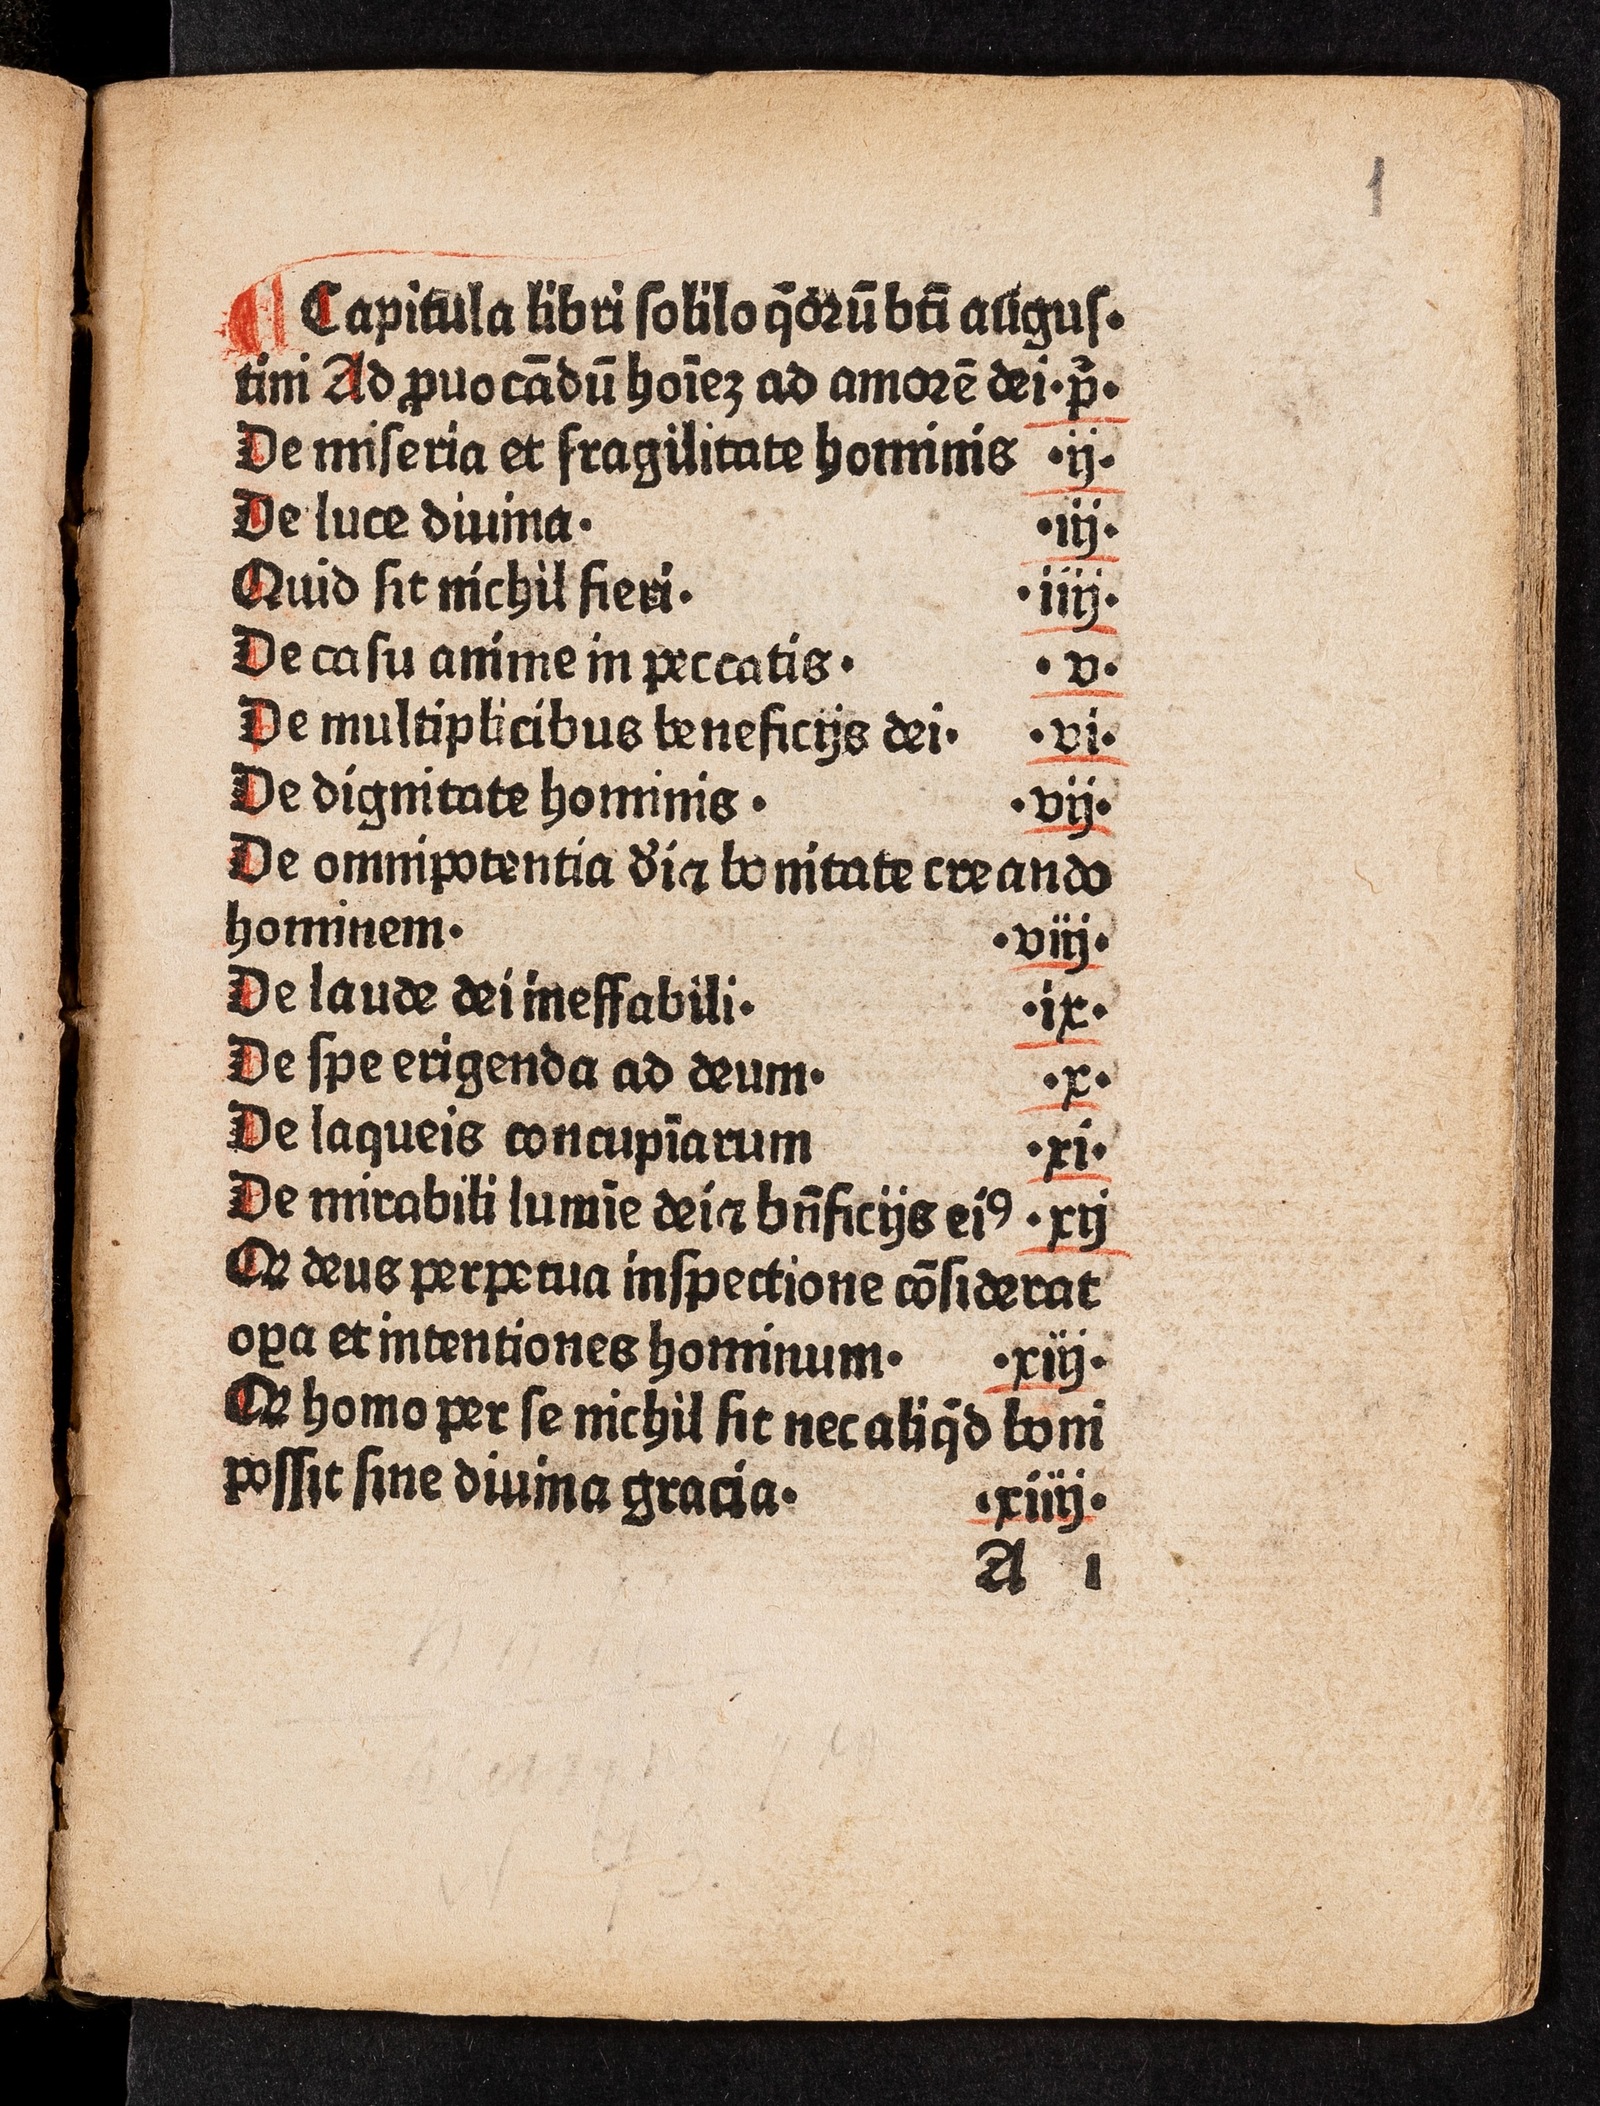 1
¶ Capitula libri solilo q̄oꝛū bti̅ augus·
tini Ad ꝓuocādū hoi̅eꝫ ad amoꝛē dei·p̄·
De miseria et fragilitate hominis ·ij·
De luce diuina· ·iij·
Quid sit nichil fieri· ·iiij·
De casu anime in peccatis· ·v·
De multiplicibus beneficijs dei· ·vi·
De dignitate hominis· ·vij·
De omnipotentia d̓i ⁊ bonitate creando
hominem· ·viij·
De laude dei ineffabili· ·ix·
De spe erigenda ad deum· ·x·
De laqueis concupi̅arum ·xi·
De mirabili lumi̅e dei ⁊ bn̅ficijs eiꝰ ·xij
Qꝛ deus perpetua inspectione cōsiderat
oꝑa et intentiones hominum· ·xiij·
Qꝛ homo per se nichil sit nec aliq̄d boni
possit sine diuina gracia· ·xiiij·
A 1